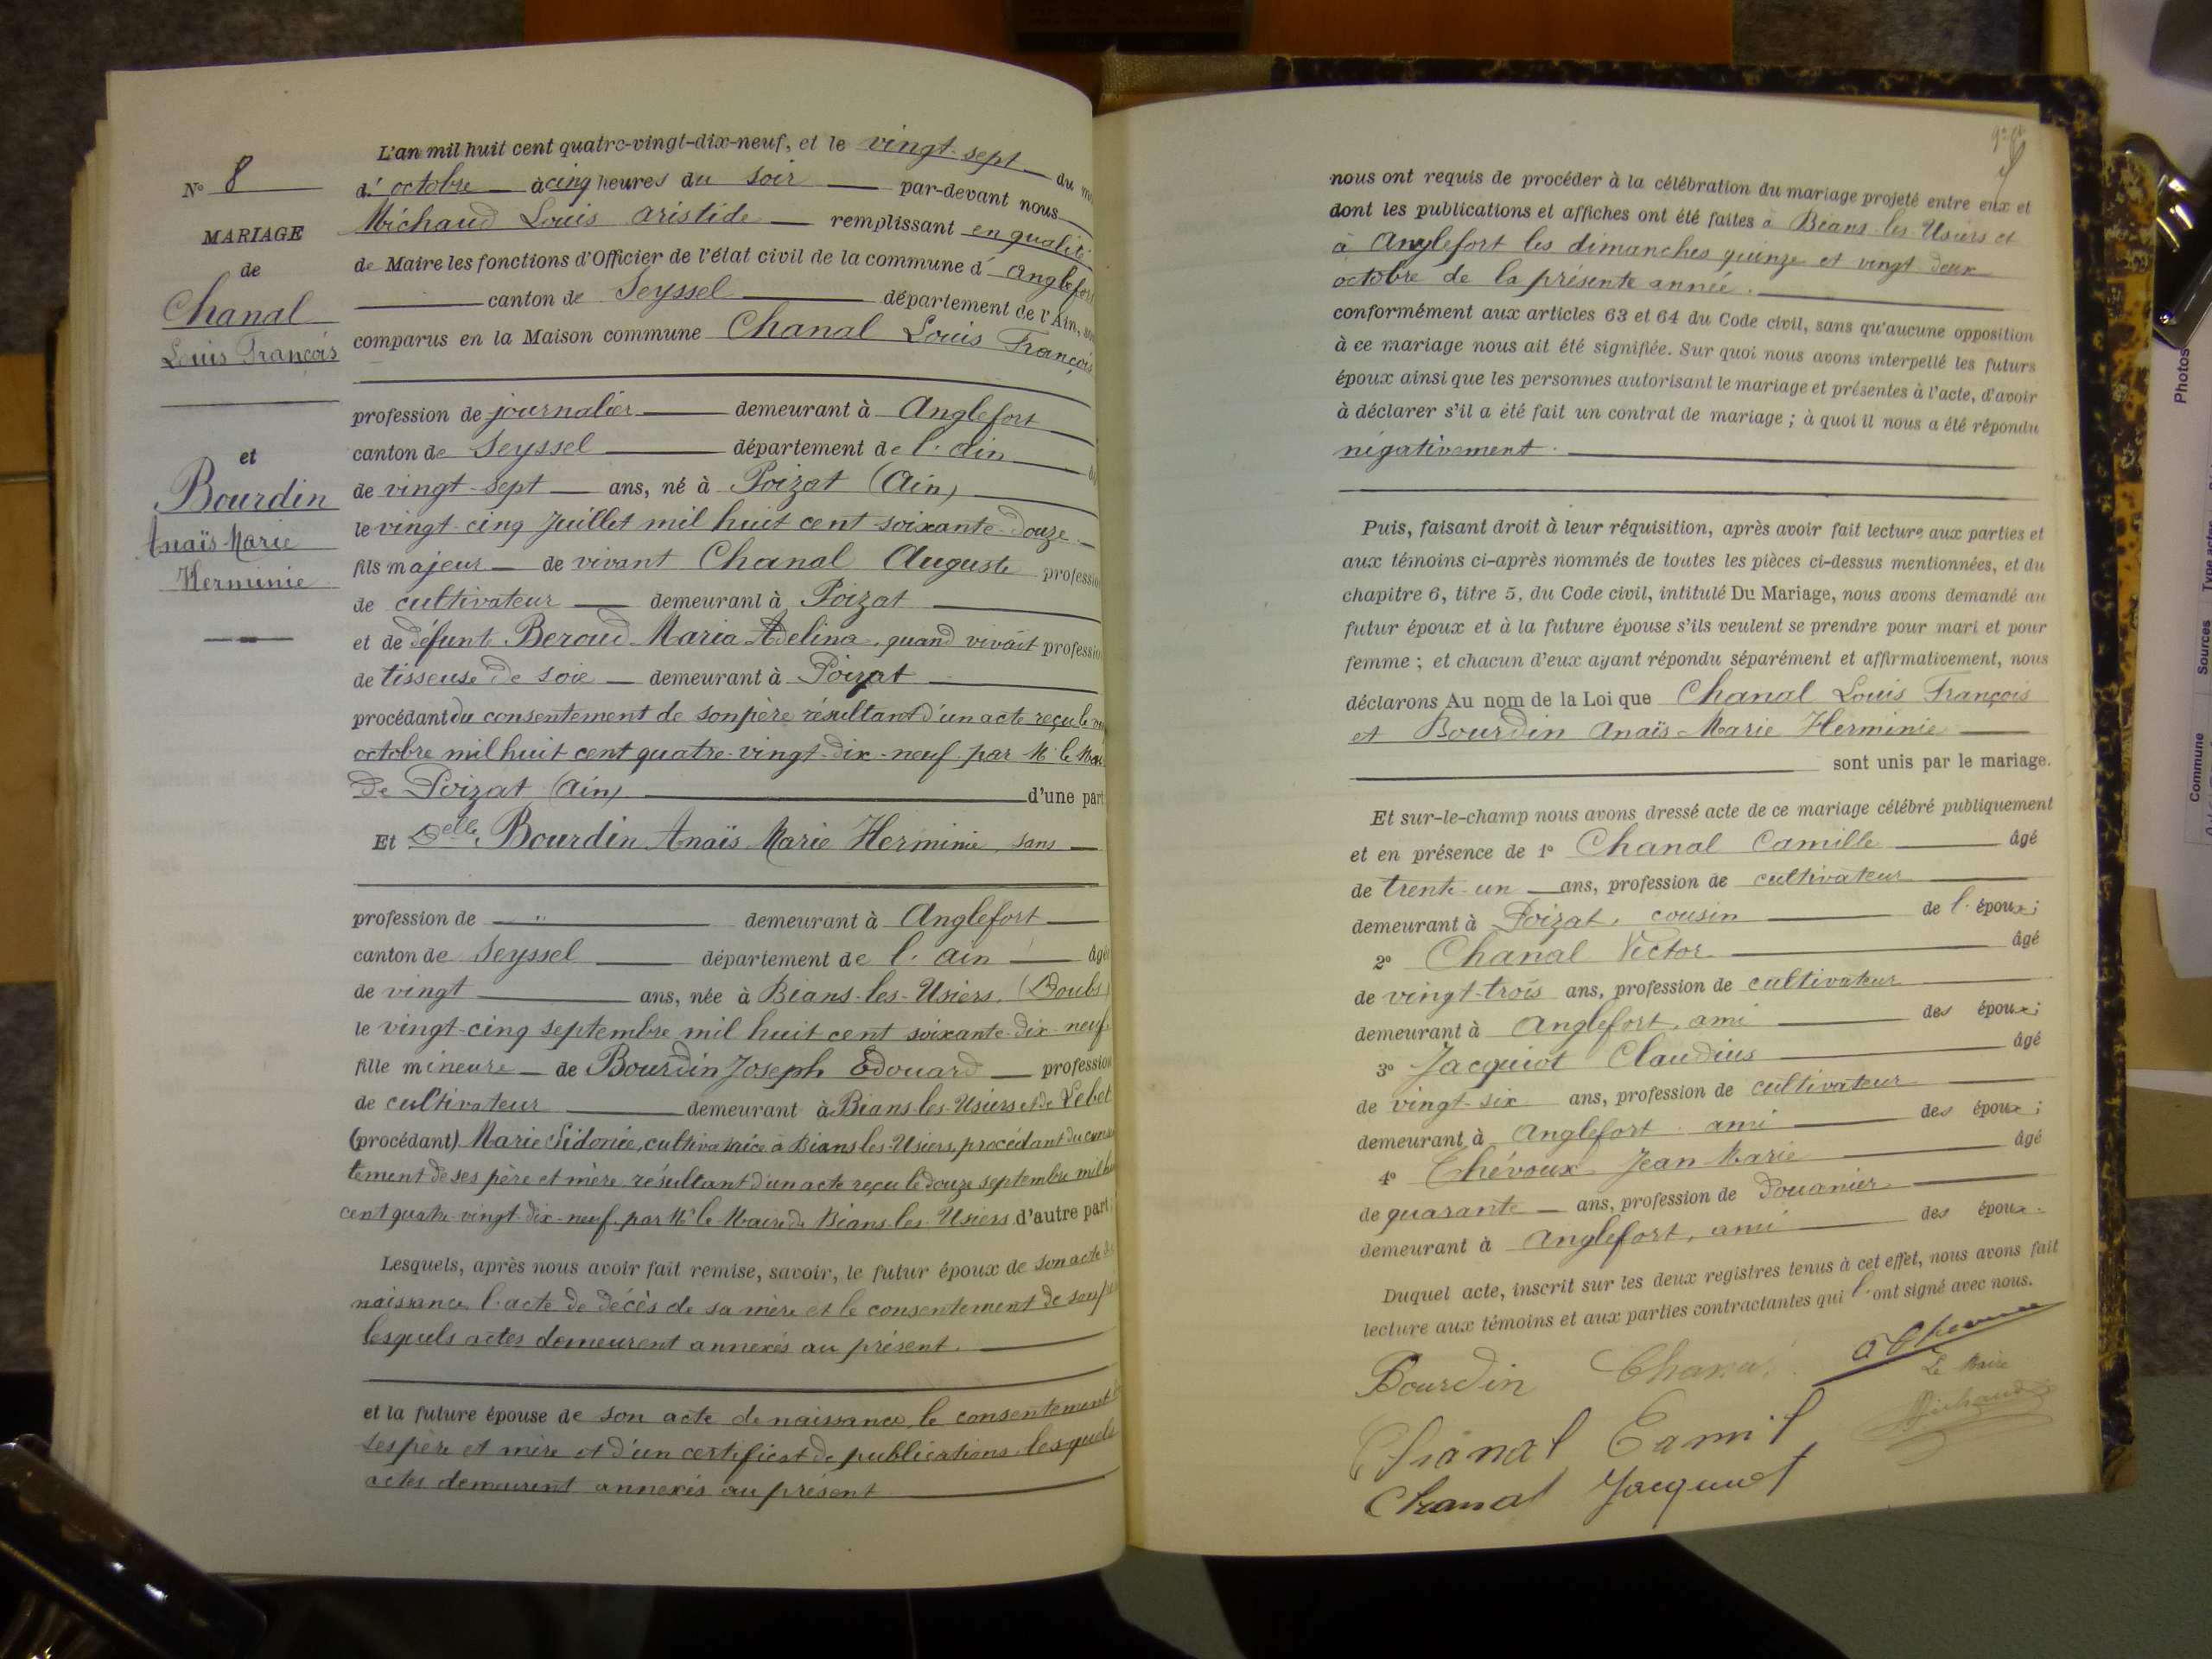 N° 8
MARIAGE
de
Chanal
Louis François
et
Bourdin
Anaïs Marie
Herminie
L'an mil huit cent quatre-vingt-dix-neuf, et le vingt-sept du
d'octobre à cinq heures du soir par-devant nous
Michaud Louis Aristide remplissant en qualité
de Maire les fonctions d'Officier de l'état civil de la commune d'Anglefort
canton de Seyssel département de l'Ain,
comparus en la Maison commune Chanal Louis François
profession de journalier demeurant à Anglefort
canton de Seyssel département de l'Ain
de vingt-sept ans, né à Poizat (Ain)
le vingt-cinq Juillet mil huit cent soixante-douze
fils majeur de vivant Chanal Auguste profession
de cultivateur demeurant à Poizat
et de défunte Beroud Maria Adelina, quand vivait profession
de tisseuse de soie demeurant à Poizat
procédant du consentement de son père résultant d'un acte reçu le
octobre mil huit cent quatre-vingt-dix-neuf par Mr le
de Poizat (Ain) d'une part
Et Delle Bourdin Anaïs Marie Herminie, sans
profession de " demeurant à Anglefort
canton de Seyssel département de l'Ain âgée
de vingt ans, née à Bians-les-Usiers (Doubs)
le vingt-cinq septembre mil huit cent soixante-dix-neuf
fille mineure de Bourdin Joseph Edouard profession
de cultivateur demeurant à Bians-les-Usiers et de Lebet
(procédant) Marie Sidonie, cultivatrice à Bians les-Usiers, procédant du consen
tement de ses père et mère résultant d'un acte reçu le douze septembre mil huit
cent quatre-vingt-dix-neuf par Mr le Maire de Bians-les-Usiers d'autre part;
Lesquels, après nous avoir fait remise, savoir, le futur époux de son acte de
naissance, l'acte de décès de sa mère et le consentement de son père
lesquels actes demeurent annexés au présent.
et la future épouse de son acte de naissance, le consentement
ses père et mère et d'un certificat de publications lesquels
actes demeurent annexés au présent
nous ont requis de procéder à la célébration du mariage projeté entre eux et
dont les publications et affiches ont été faites à Bians-les-Usiers et
à Anglefort les dimanches quinze et vingt-deux
octobre de la présente année.
conformément aux articles 63 et 64 du Code civil, sans qu'aucune opposition
à ce mariage nous ait été signifiée. Sur quoi nous avons interpellé les futurs
époux ainsi que les personnes autorisant le mariage et présentes à l'acte, d'avoir
à déclarer s'il a été fait un contrat de mariage ; à quoi il nous a été répondu
négativement.
Puis, faisant droit à leur réquisition, après avoir fait lecture aux parties et
aux témoins ci-après nommés de toutes les pièces ci-dessus mentionnées, et du
chapitre 6, titre 5, du Code civil, intitulé Du Mariage, nous avons demandé au
futur époux et à la future épouse s'ils veulent se prendre pour mari et pour
femme ; et chacun d'eux ayant répondu séparément et affirmativement, nous
déclarons Au nom de la Loi que Chanal Louis François
et Bourdin Anaïs-Marie Herminie
sont unis par le mariage.
Et sur-le-champ nous avons dressé acte de ce mariage célébré publiquement
et en présence de 1° Chanal Camille âgé
de trente-un ans, profession de cultivateur
demeurant à Poizat, cousin de l'époux;
2° Chanal Victor âgé
de vingt-trois ans, profession de cultivateur
demeurant à Anglefort, ami des époux;
3° Jacquiot Claudius âgé
de vingt-six ans, profession de cultivateur
demeurant à Anglefort ami des époux;
4° Thévoux Jean-Marie âgé
de quarante ans, profession de douanier
demeurant à Anglefort, ami des époux.
Duquel acte, inscrit sur les deux registres tenus à cet effet, nous avons fait
lecture aux témoins et aux parties contractantes qui l'ont signé avec nous.
Bourdin Chanal
Le Maire
Michaud
Chanal Camil
Chanal Jacquiot
Photos
Type acte
Sources
Commune